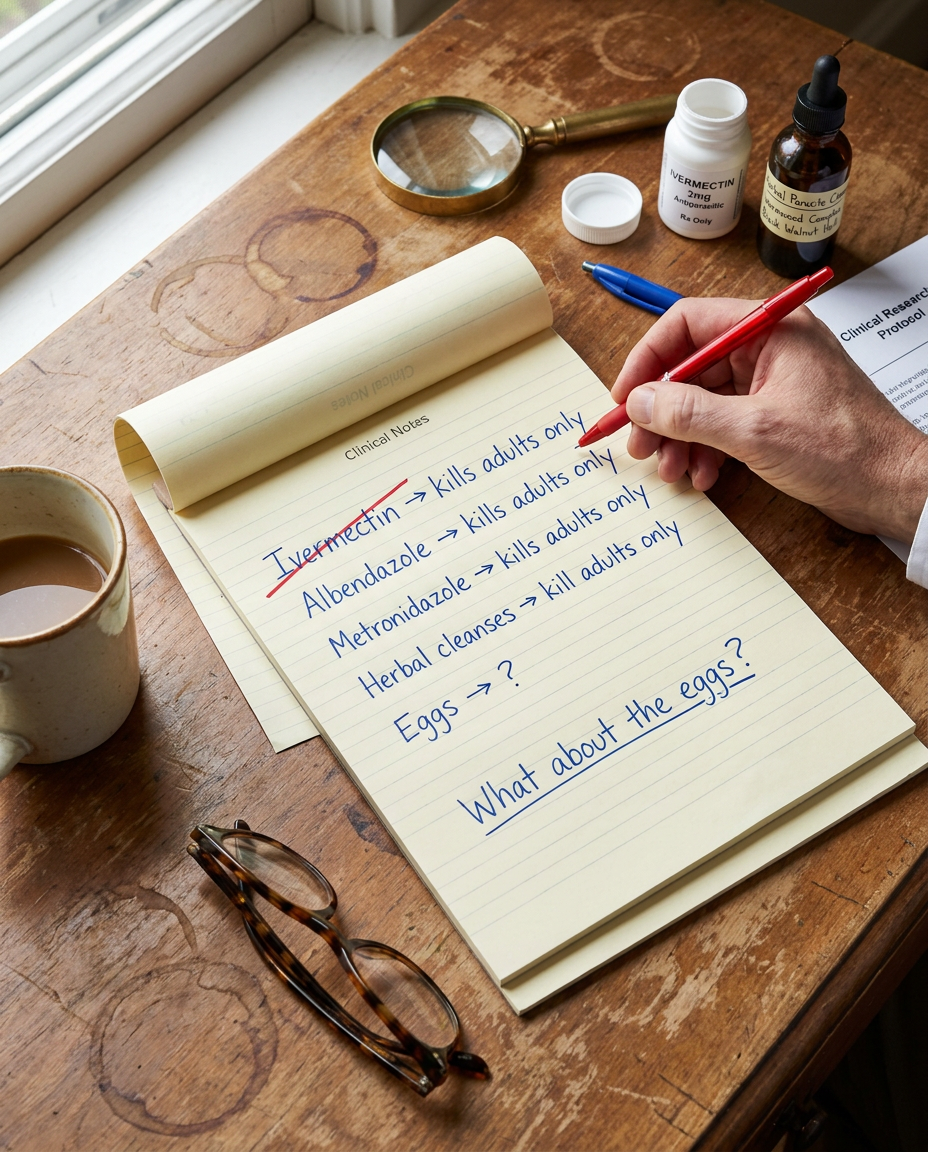 Clinical Notes
Clinical Notes
Ivermectin → kills adults only
Albendazole → kills adults only
Metronidazole → kills adults only
Herbal cleanses → kill adults only
Eggs → ?
What about the eggs?
IVERMECTIN
2mg
Antiparasitic
Rx Only
Black Walnut
Clinical Research
Protocol